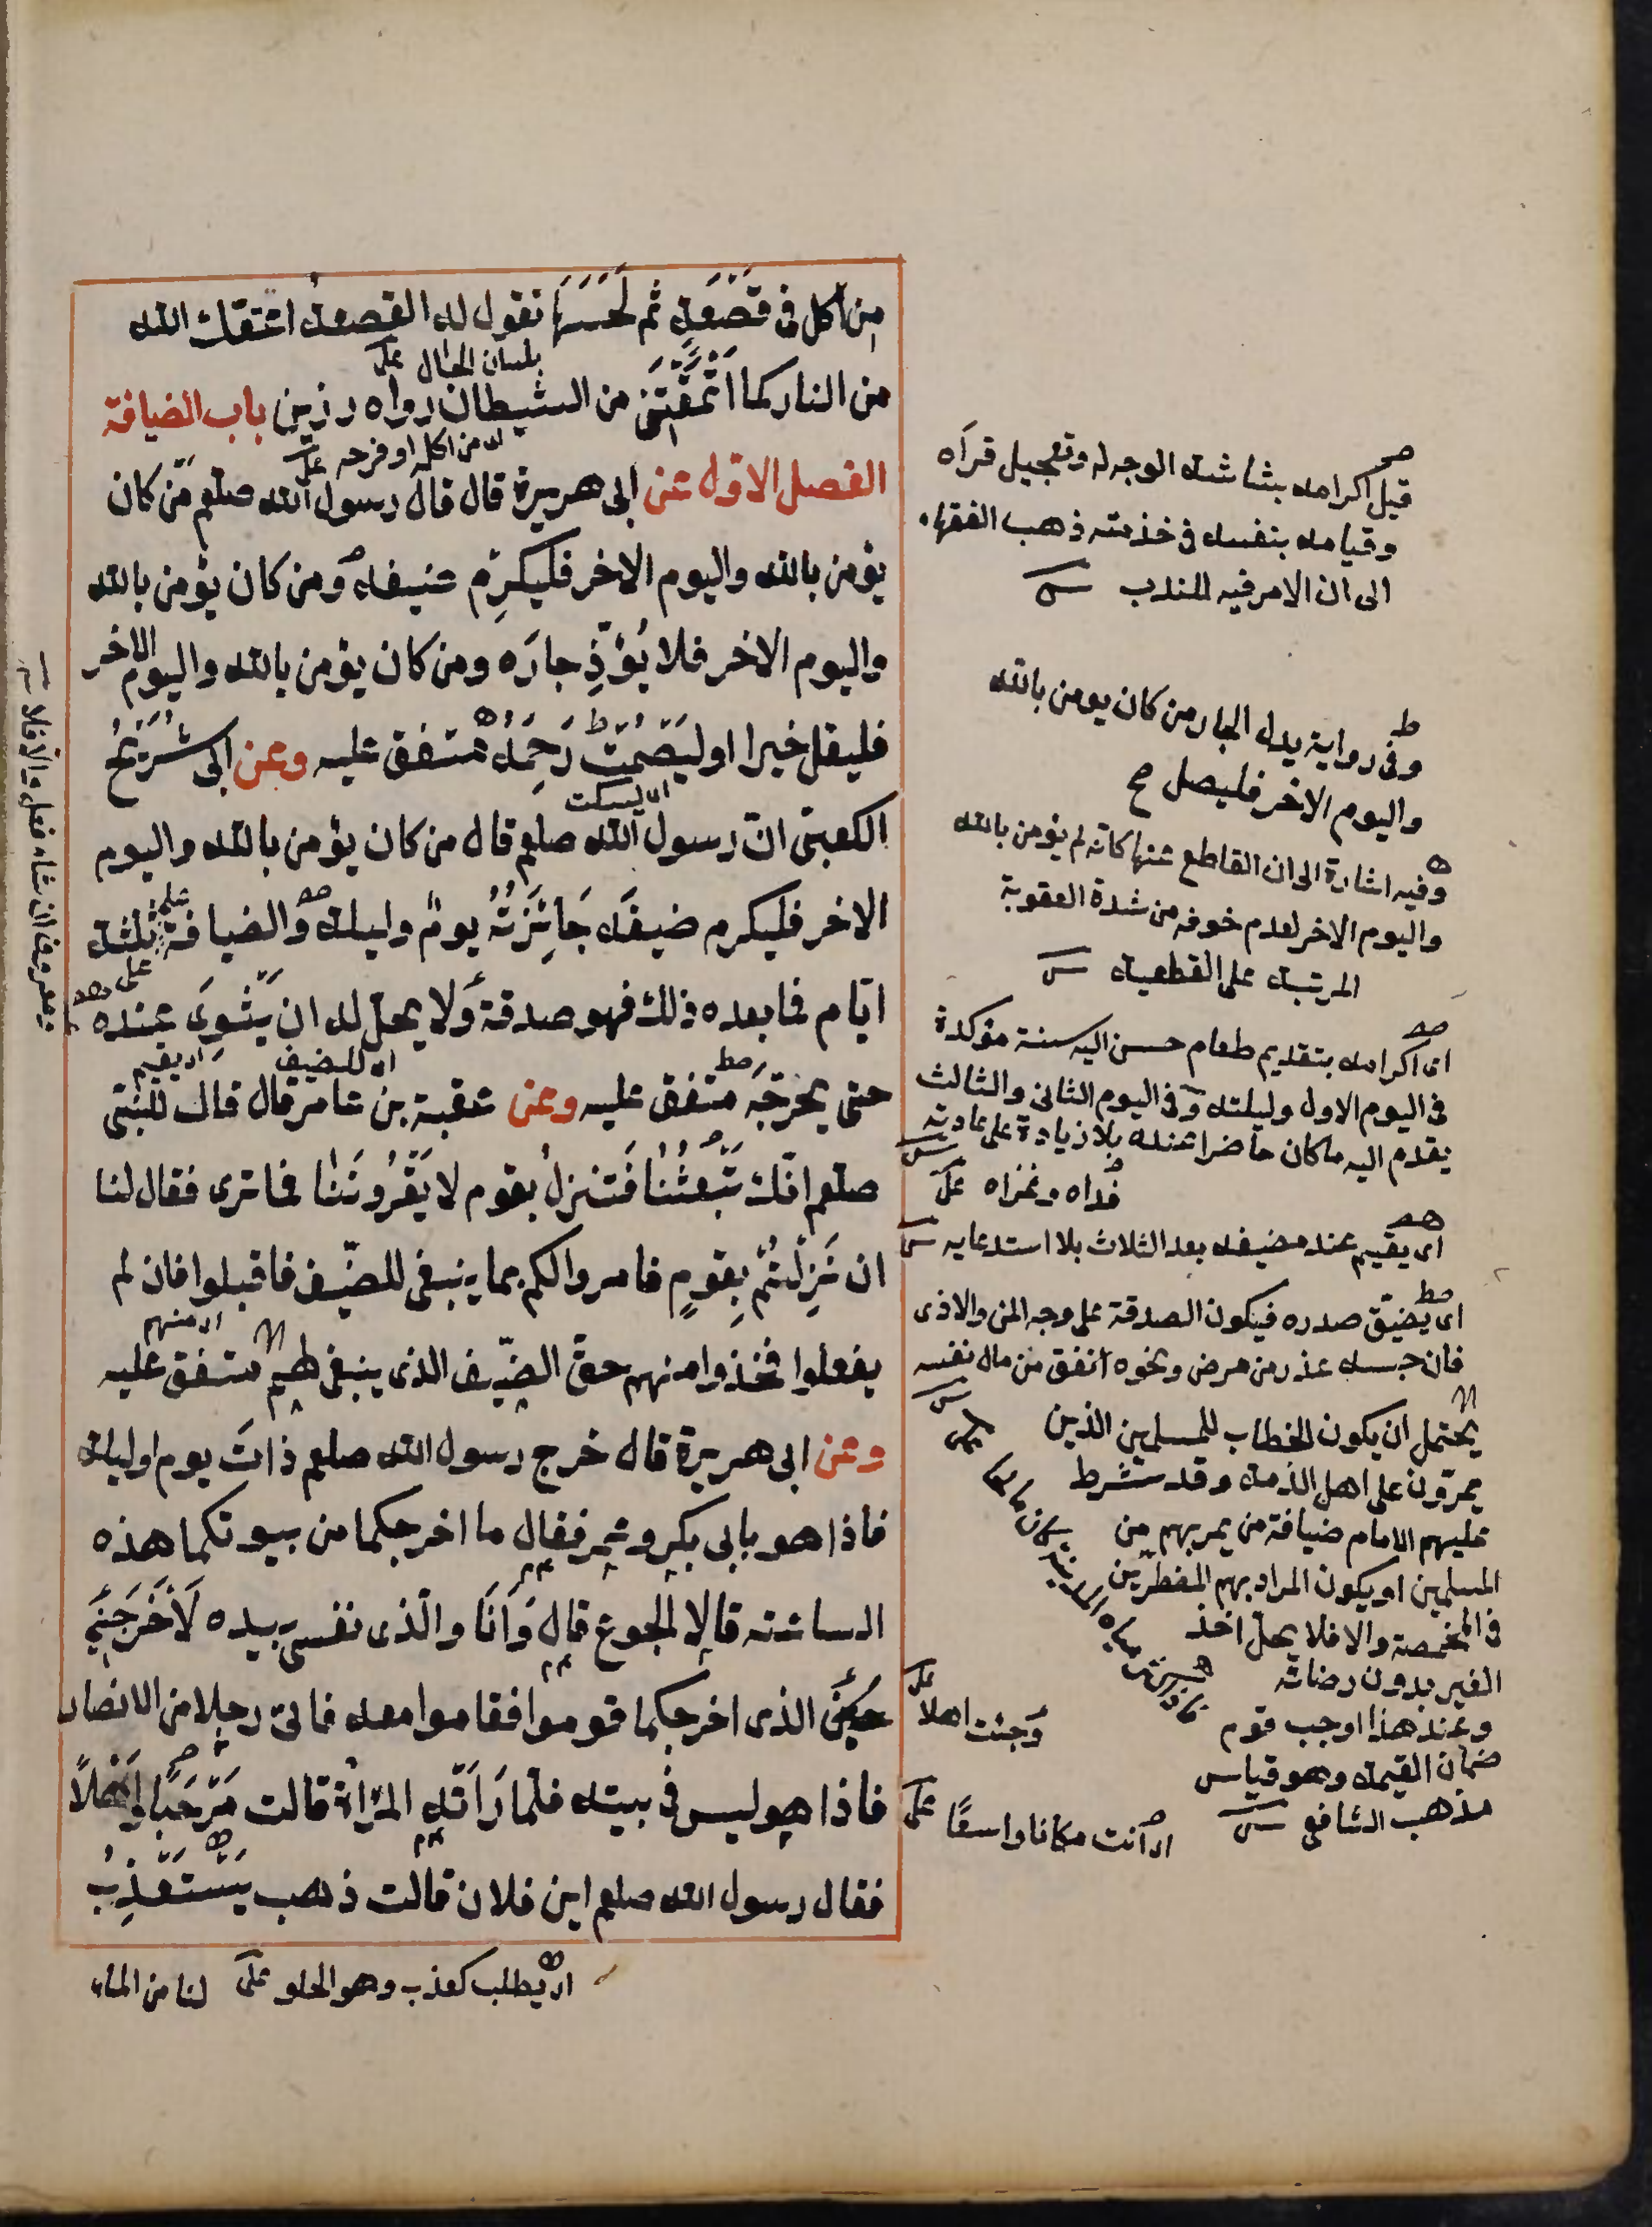 من اكل فى قَصْعَةٍ ثم لَحَسَهَا تقول له القصعة اعتقك الله
بلسان الحال على
من النار كما اَعْتَقْتَنِى من الشيطان رواه رزين باب الضيافة
اى من اكله او فرحه على
الفصل الاوّل عن ابى هريرة قال قال رسول الله صلعم مَن كان
يؤمن بالله واليوم الاخر فليكرِم ضيفه ومن كان يؤمن بالله
واليوم الاخر فلا يُؤذِ جارَه ومن كان يؤمن بالله واليوم الاخر
فليقل خيرا او ليَصْمُتْ رَحِمَهُ متفق عليه وعن ابى شُرَيْحٍ
اى ليسكت
الكعبىّ انّ رسول الله صلعم قال من كان يؤمن بالله واليوم
الاخر فليكرم ضيفَه جَائِزَتُهُ يومٌ وليلة والضيافة ثلثة
ايّام فما بعده ذلك فهو صدقة وَلا يحل له ان يَثْوِىَ عنده
اى للضيف اى يقيم
حتى يحرجَه متفق عليه وعن عقبة بن عامر قال قلت للنبىّ
صلعم انّك تَبْعَثُنَا فَننزلُ بقوم لا يَقْرُونَنَا فما ترى فقال لنا
ان نَزِلْتُمْ بِقومٍ فامروا لكم بما ينبغى للضّيف فاقبلوا فان لم
اى منهم
يفعلوا فخذوا منهم حقّ الضّيف الذى ينبغى لهم متفق عليه
وعن ابى هريرة قال خرج رسول الله صلعم ذاتَ يوم او ليلة
فاذا هو بابى بكر وعمر فقال ما اخرجكما من بيوتكما هذه
الساعته قالا الجوع قال وَاَنَا والّذى نفسى بيده لَاَخْرَجَنِى
الذى اخرجكما قوموا فقاموا معه فاتى رجلا من الانصار
فاذا هو ليس فى بيته فلمّا رَاَتْهُ المَرْاَةُ قالت مَرْحَبًا وَاَهْلًا
فقال رسول الله صلعم اين فلان قالت ذهب يَسْتَعْذِبُ
اى يطلب كعذب وهو الحلو على لنا من الماء
قيل اكرامه بشاشة الوجه له وتعجيل قراه
وقيامه بنفسه فى خذمته ذهب الفقهاء
الى ان الامر فيه للندب
وفى رواية بدل الجار من كان يومن بالله
واليوم الاخر فليصل
وفيه اشارة الى ان القاطع عنها كانه لم يؤمن بالله
واليوم الاخر لعدم خوفه من شدة العقوبة
المرتبة على القطعية
اى اكرامه بتقديم طعام حسن اليه سنة مؤكدة
فى اليوم الاول وليلته وفى اليوم الثانى والثالث
يقدم اليه ماكان حاضرا عنده بلا زيادة على عادته
اى يقيم عند مضيفه بعد الثلاث بلا استدعايه
اى يضيّق صدره فيكون الصدقة على وجه المن والاذى
فان حبسه عذر من مرض ونحوه انفق من مال نفسه
يحتمل ان يكون الخطاب للمسلمين الذين
يمرّون على اهل الذمة وقد شرط
عليهم الامام ضيافة من يمر بهم من
المسلمين او يكون المراد بهم المضطرّين
فى المخمصة والا فلا يحل اخذ
الغير بدون رضائه
وعند هذا اوجب قوم
ضمان القيمة وهو قياس
مذهب الشافعى
وَجئت اهلا على
اى اَتت مكانا واسعًا على